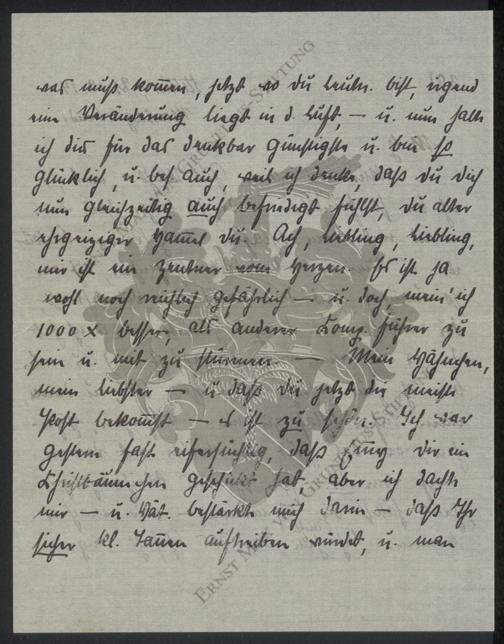 was muß kommen, jetzt wo du Leutn. bist, irgend
eine Veränderung liegt in d. Luft, – u. nun halte
ich dies für das denkbar Günstigste u. bin so
glücklich, u. bes auch, weil ich denke, daß du dich
nun gleichzeitig auch befriedigt fühlst, du alter
ehrgeiziger Hammel du. Ach, Liebling, Liebling,
mir ist ein Zentner vom Herzen. Es ist ja
wohl noch reichlich gefährlich – u. doch, mein' ich
1000 x besser, als anderer Komp. führer zu
sein u. mit zu stürmen. – Mein Hähnchen,
mein Liebster – u. daß du jetzt die meiste
Post bekommst – es ist zu
Ich war
gestern fast eifersüchtig, daß dir ein
Christbäumchen geschickt hat, aber ich dachte
mir – u. Wät. bestärkte mich darin – daß Ihr
sicher kl. Tannen auftreiben würdet, u. man
ERNST MAX VON GRUNELIUS-STIFTUNG